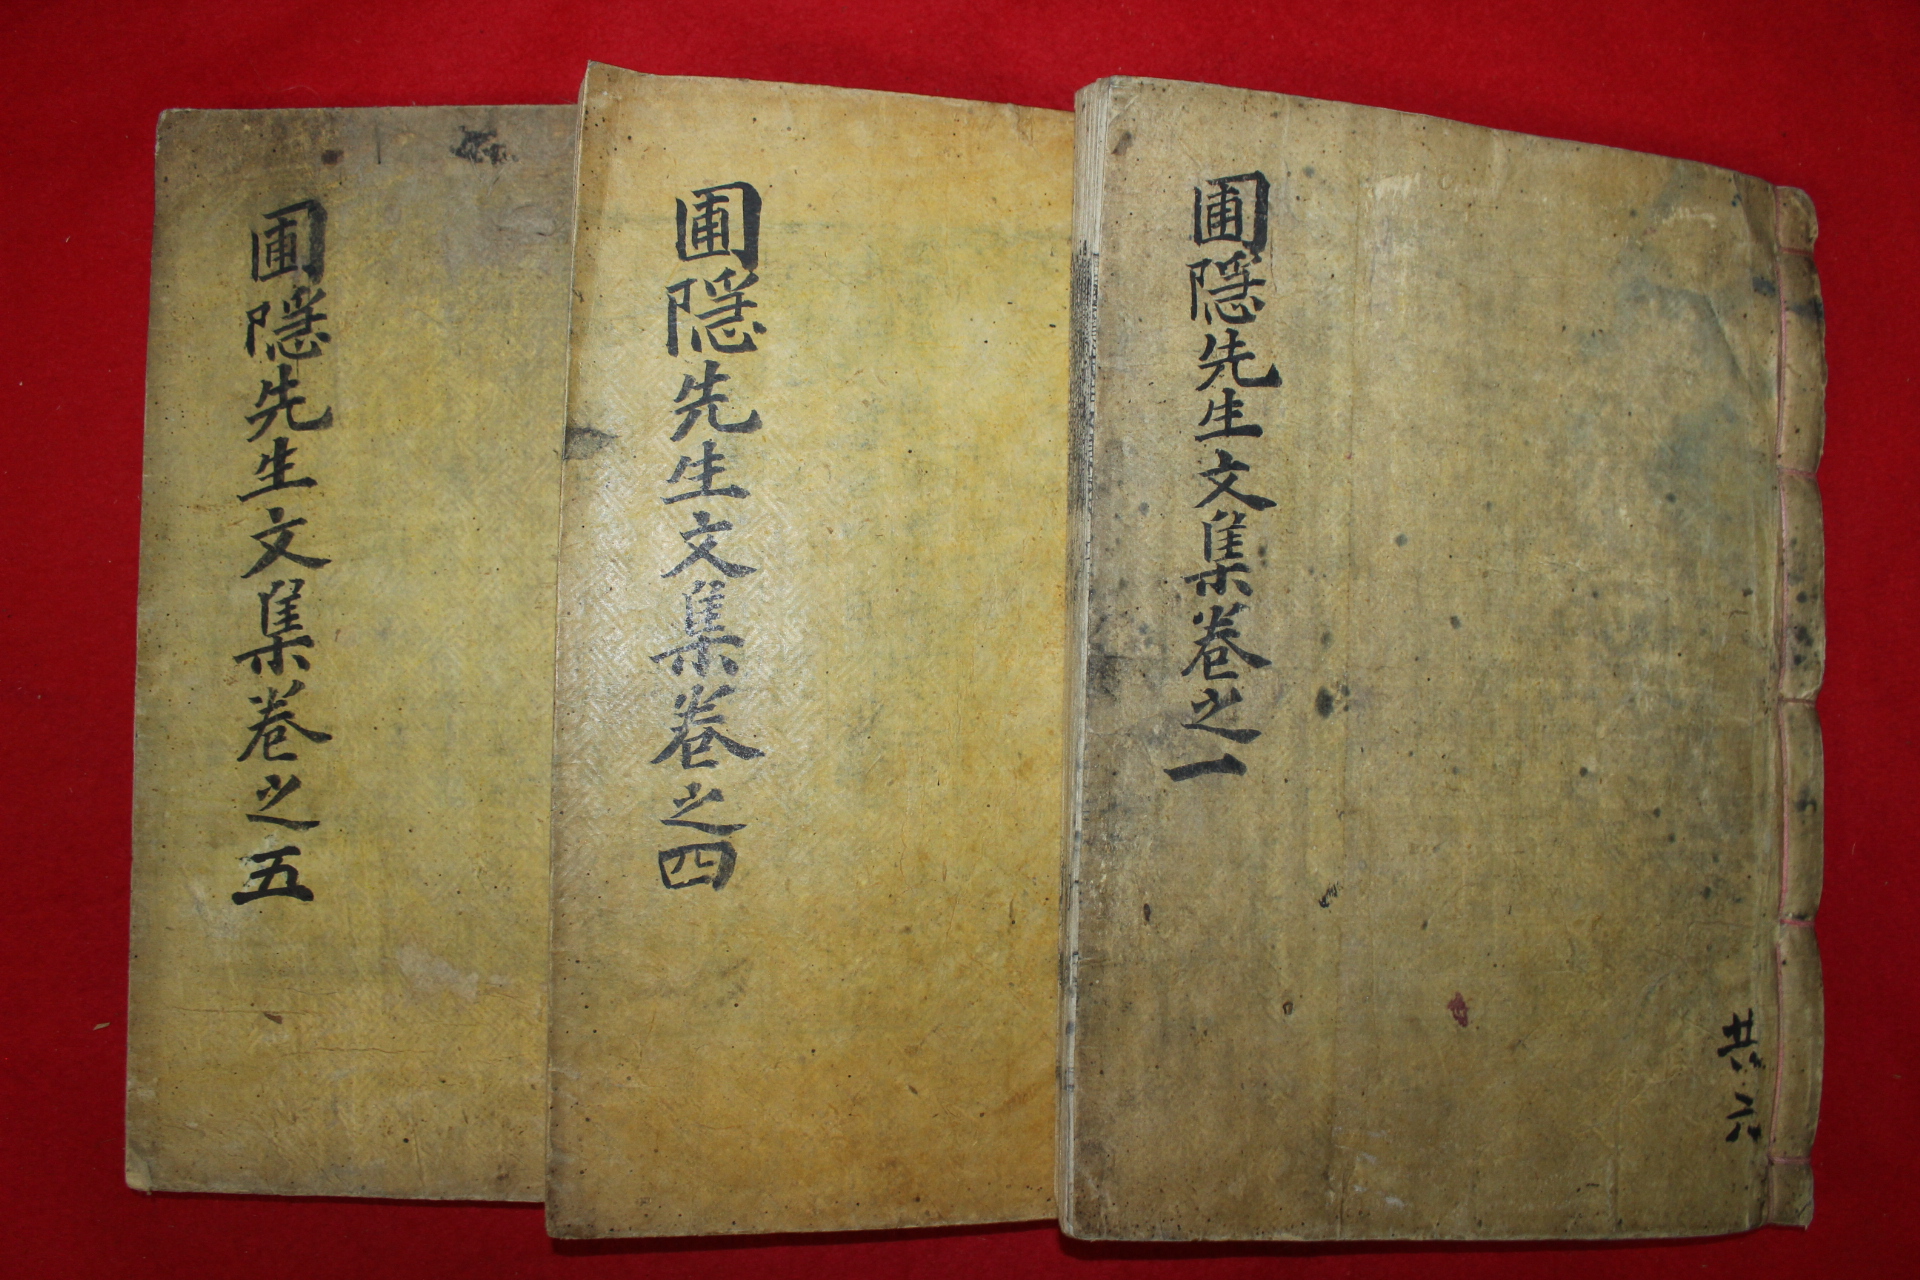 圃隠先生文集卷之一
共六
圃隠先生文集卷之四
圃隠先生文集卷之五